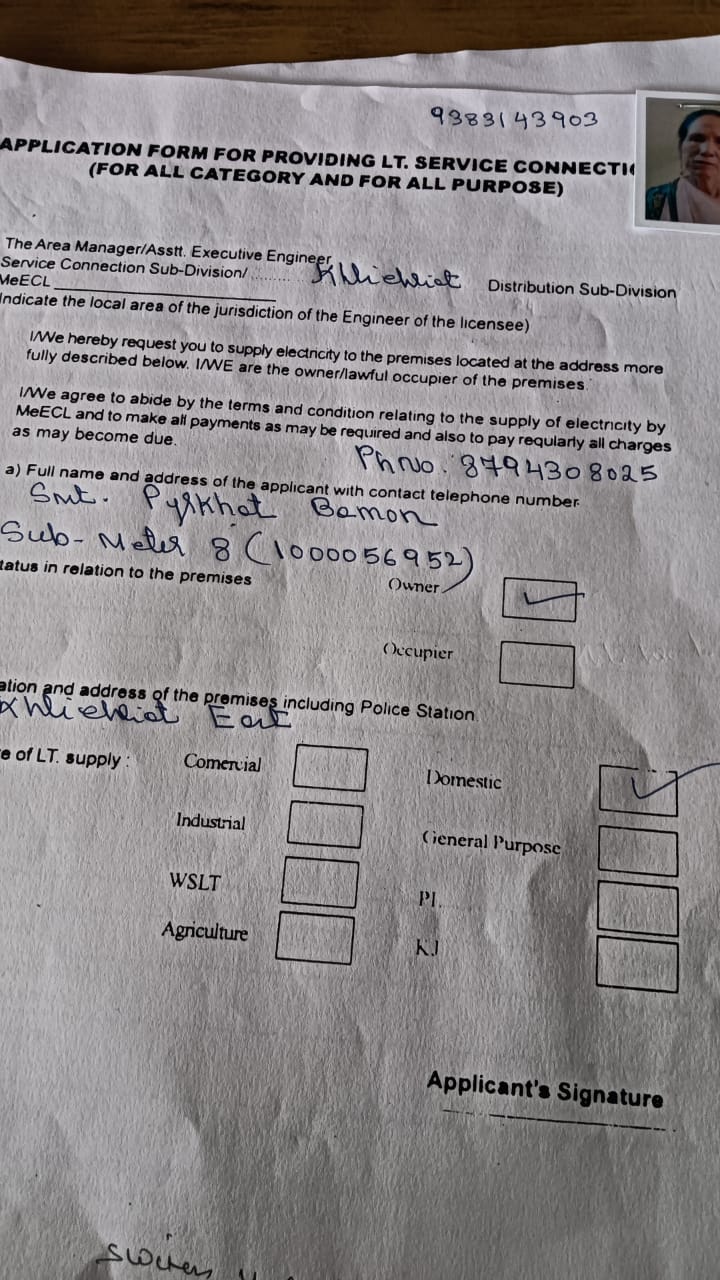 9383143903
APPLICATION FORM FOR PROVIDING LT. SERVICE CONNECTI
(FOR ALL CATEGORY AND FOR ALL PURPOSE)
The Area Manager/Asstt. Executive Engineer
Service Connection Sub-Division/ ......... Khliehriat Distribution Sub-Division
MeECL
Indicate the local area of the jurisdiction of the Engineer of the licensee)
I/We hereby request you to supply electricity to the premises located at the address more
fully described below. I/WE are the owner/lawful occupier of the premises.
I/We agree to abide by the terms and condition relating to the supply of electricity by
MeECL and to make all payments as may be required and also to pay reqularly all charges
as may become due.
Ph No. 8794308025
a) Full name and address of the applicant with contact telephone number
Smt. Pyrkhat Bamon
Sub-Meter 8 (1000056952)
tatus in relation to the premises
Owner
Occupier
ation and address of the premises including Police Station
Khliehriat East
e of LT. supply :
Comercial
Domestic
Industrial
General Purpose
WSLT
PL
Agriculture
KJ
Applicant's Signature